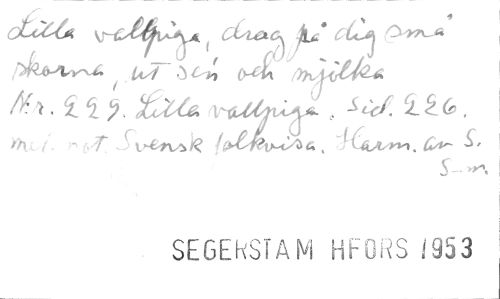 Lilla vallpiga, drag på dig små
skorna, ut sen och mjölka
N:r. 229. Lilla vallpiga. Sid. 226.
med not. Svensk folkvisa. Harm. av S.
S-m.
SEGERSTAM HFORS 1953